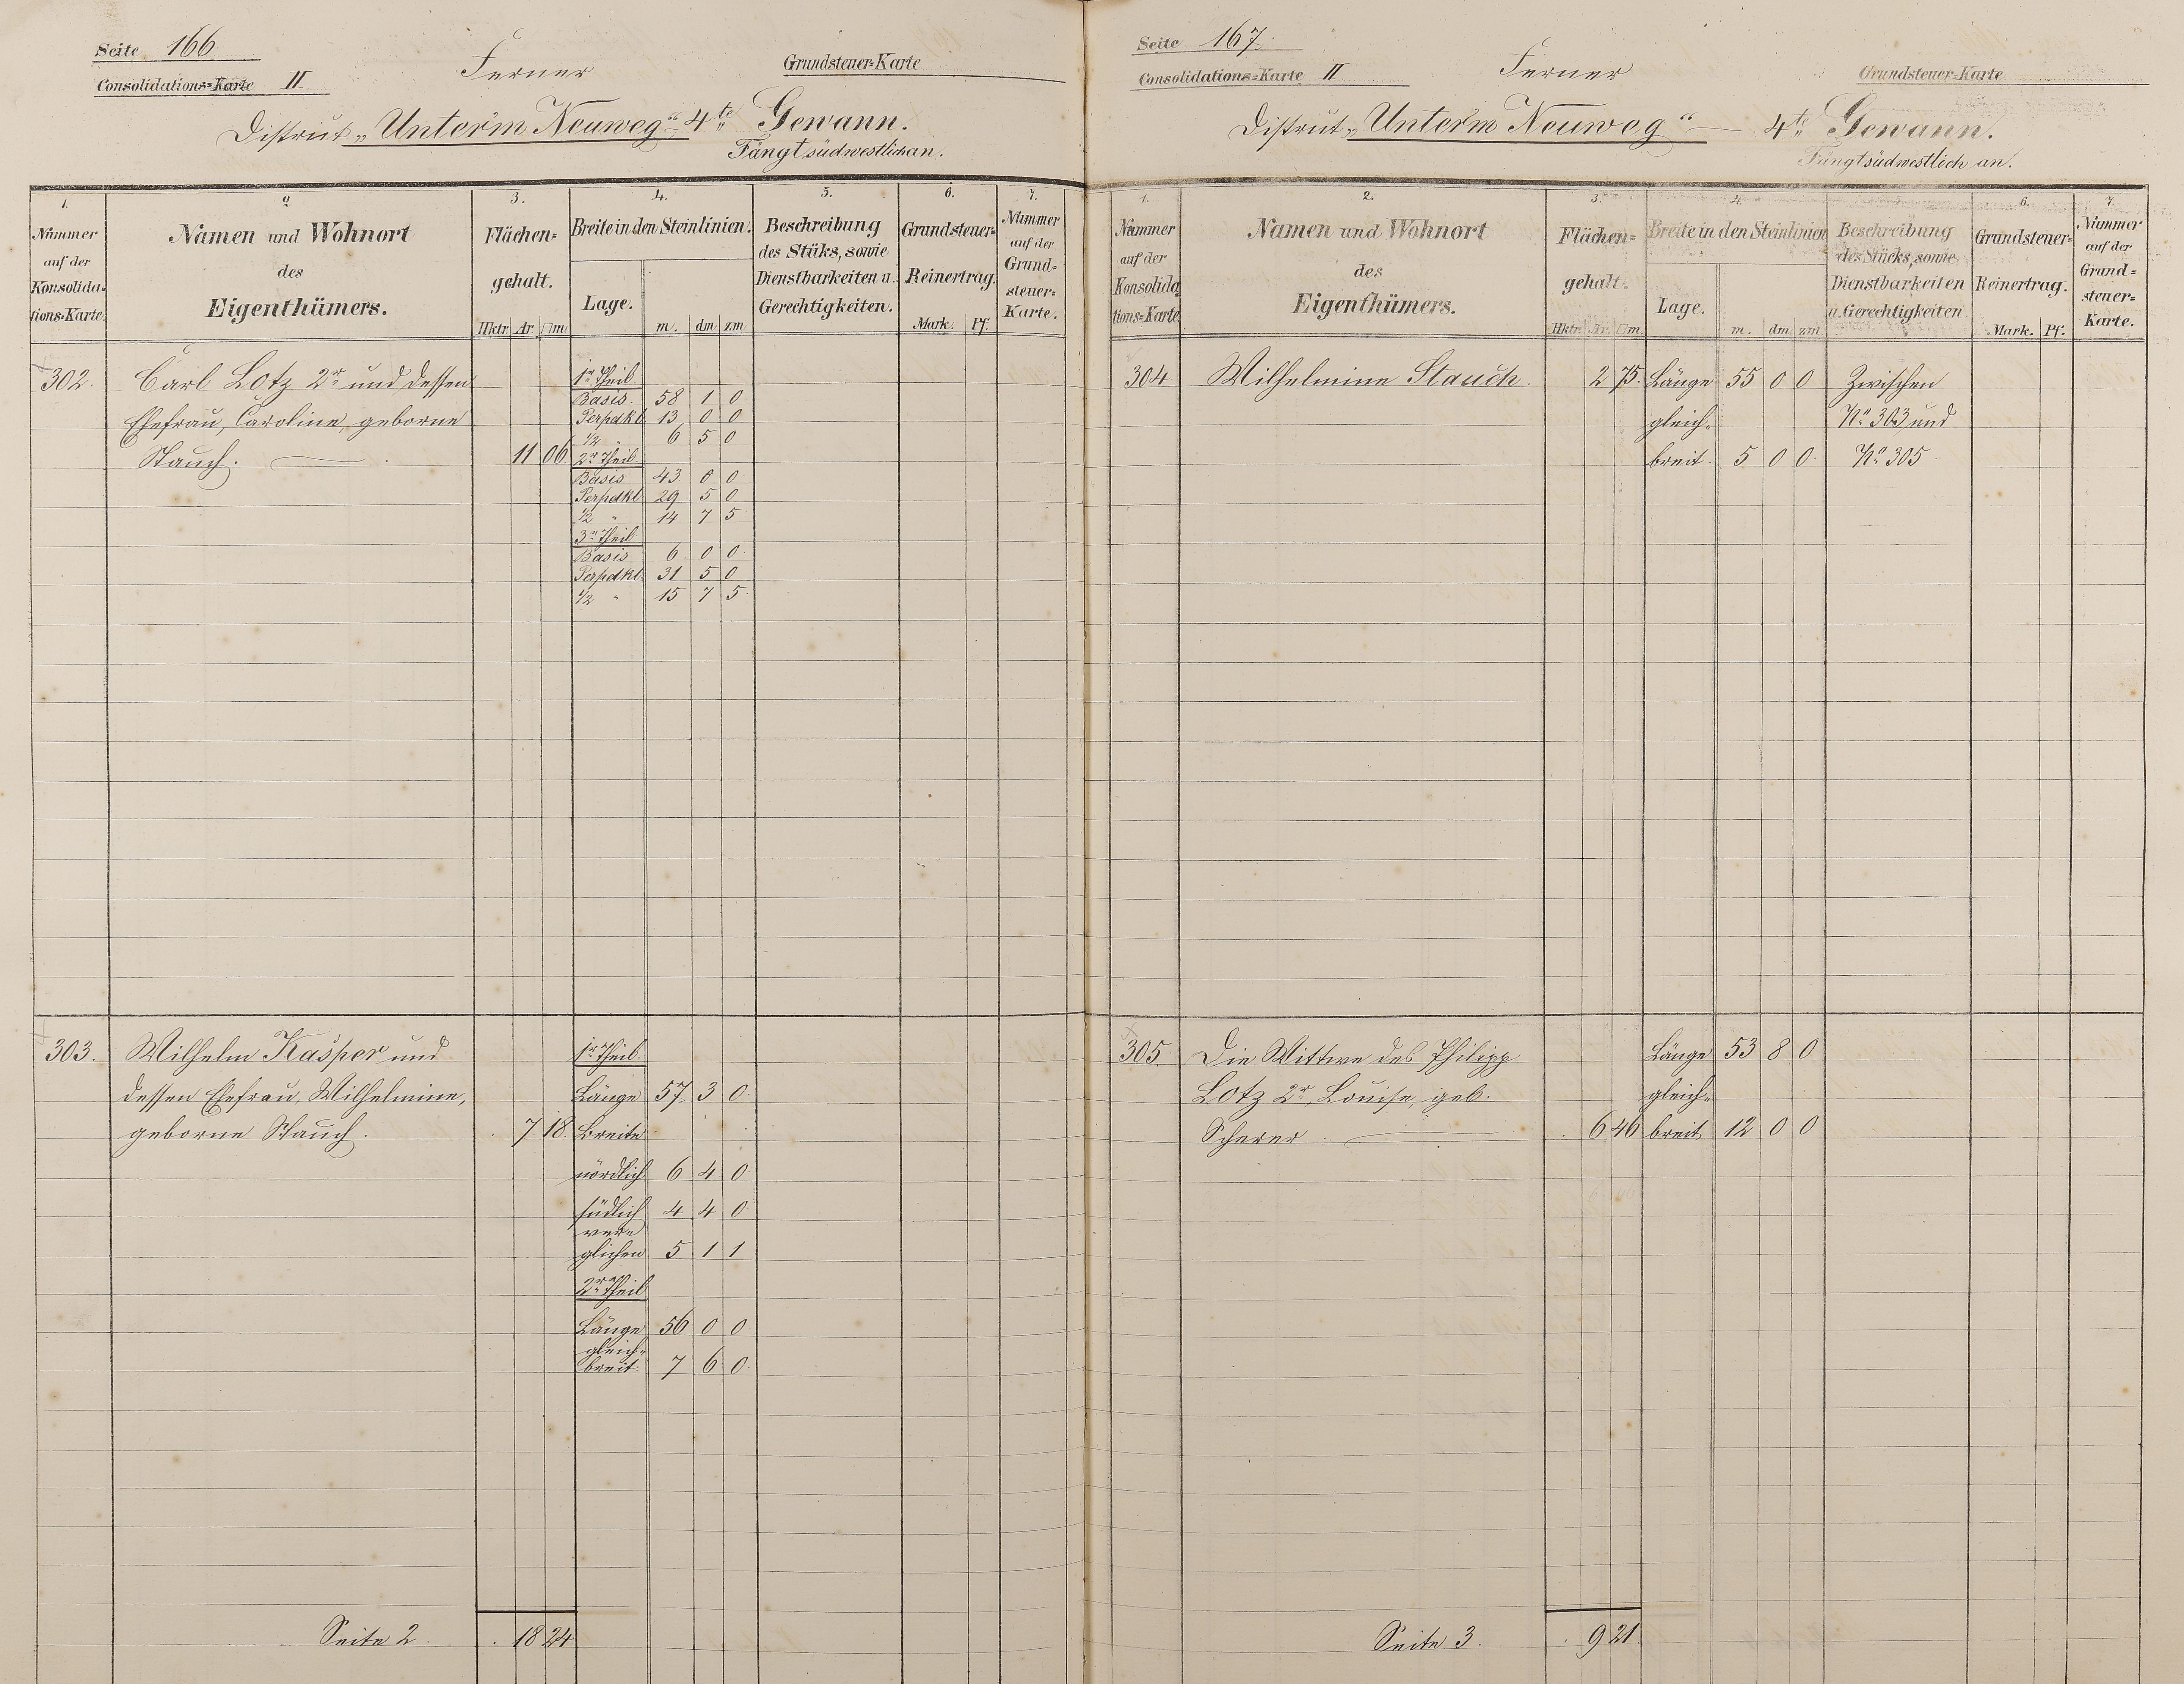 Seite 166
Consolidations=Karte II
Ferner
Grundsteuer=Karte
District „Unter'm Neuweg“ 4te Gewann.
Fängt südwestlich an.
1. 2. 3. 4. 5. 6. 7.
Nummer auf der Konsolida=tions=Karte
Namen und Wohnort
des
Eigenthümers.
Flächen=
gehalt.
Hktr. Ar □m
Breite in den Steinlinien.
Lage.
m. dm zm
Beschreibung
des Stüks, sowie
Dienstbarkeiten u.
Gerechtigkeiten.
Grundsteuer=
Reinertrag.
Mark. Pf.
Nummer
auf der
Grund=
steuer=
Karte.
302. Carl Lotz 2r und dessen
Ehefrau, Caroline, geborne
Stauch. 11 06
1r Theil
Basis. 58 1 0
Perpdkl. 13 0 0
1/2 „ 6 5 0
2r Theil
Basis 43 0 0
Perpdkl 29 5 0
1/2 „ 14 7 5
3r Theil
Basis 6 0 0
Perpdkl. 31 5 0
1/2 „ 15 7 5
303. Wilhelm Kasper und
dessen Ehefrau, Wilhelmine,
geborne Stauch. 7 18.
1r Theil
Länge 57 3 0
Breite
nördlich 6 4 0
südlich 4 4 0
ver=
glichen 5 1 1
2r Theil
Länge 56 0 0
gleich=
breit 7 6 0
Seite 2. 18 24
Seite 167
Consolidations=Karte II
Ferner
Grundsteuer=Karte
District „Unter'm Neuweg“ 4te Gewann.
Fängt südwestlich an.
1. 2. 3. 4. 5. 6. 7.
Nummer
auf der
Konsolida
tions=Karte
Namen und Wohnort
des
Eigenthümers.
Flächen=
gehalt.
Hktr. Ar. □m.
Breite in den Steinlinien
Lage.
m. dm zm
Beschreibung
des Stücks, sowie
Dienstbarkeiten
u. Gerechtigkeiten
Grundsteuer=
Reinertrag.
Mark. Pf.
Nummer
auf der
Grund=
steuer=
Karte.
304 Wilhelmine Stauch. 2 75. Länge 55 0 0 Zwischen
gleich= No 303 und
breit. 5 0 0 No 305
305. Die Wittwe des Philipp Länge 53 8 0
Lotz 2r, Louise, geb. gleich=
Scherer 6 46 breit 12 0 0
Seite 3. 9 21.